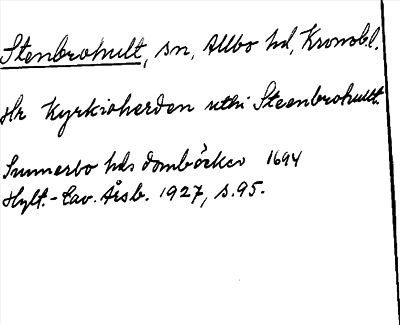 Stenbrohult, sn, Allbo hd, Kronobl.
Hr Kyrkioherden uthi Steenbrohullt.
Sunnerbo hds domböcker 1694
Hylt.-Cav. Årsb. 1927, s. 95.